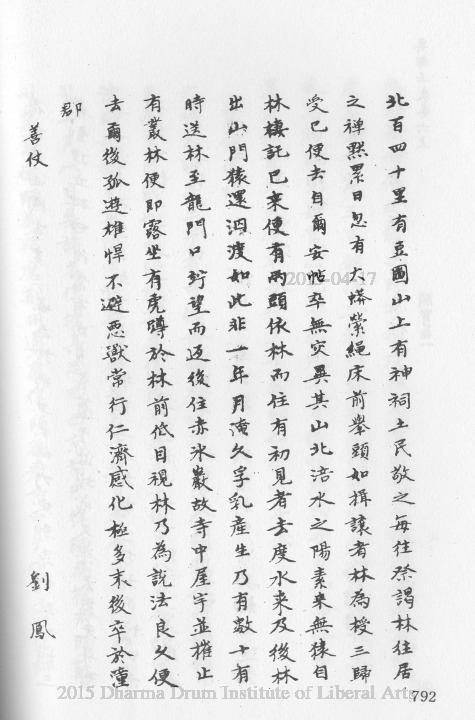 北百四十里有豆圌山上有神祠土民敬之每往祭謁林往居
之禪默累日忽有大蟒縈繩床前舉頭如揖讓者林為授三歸
受已便去自爾安帖卒無灾異其山北涪水之陽素來無猿自
林棲託已來便有兩頭依林而住有初見者去度水來及後林
出山門猿還泅渡如此非一年月淹久孚乳產生乃有數十有
時送林至龍門口蹲望而返後住赤水巖故寺中屋宇並摧止
有叢林便即露坐有虎蹲於林前低目視林乃為說法良久便
去爾後孤遊雄悍不避惡獸常行仁濟感化極多末後卒於潼
郡
善伏
劉鳳
2015-04-17
2015 Dharma Drum Institute of Liberal Arts
792